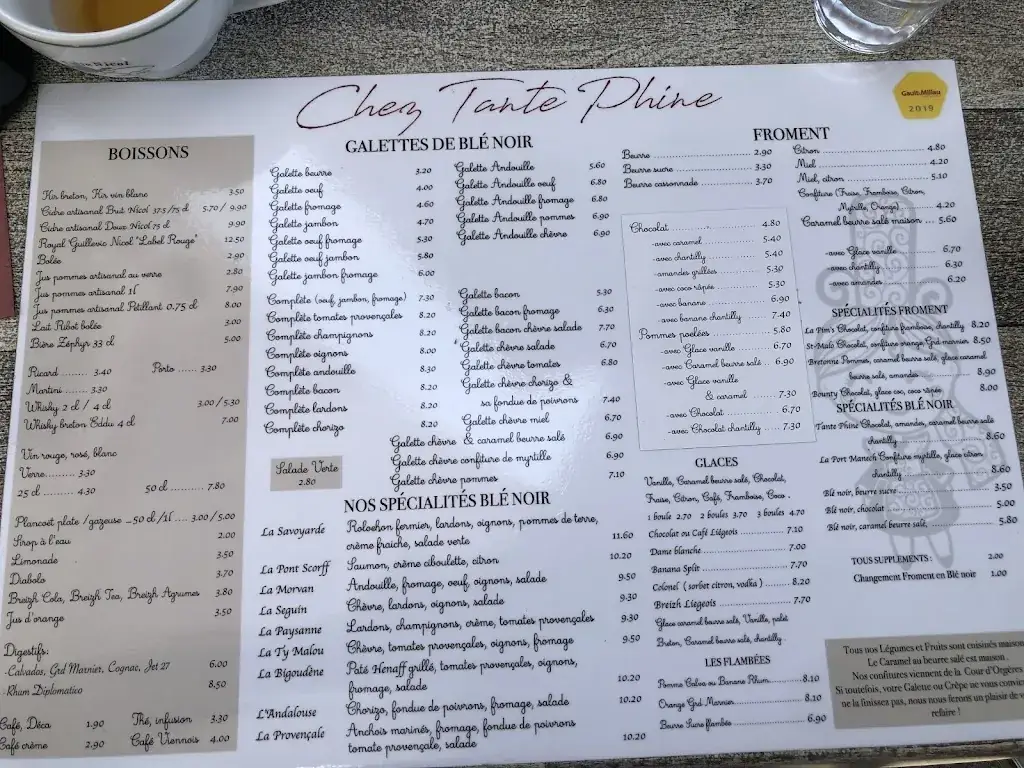 Nicol
Chez Tante Phine
Gault&Millau
2019
BOISSONS
Kir breton, Kir vin blanc 3.50
Cidre artisanal Brut Nicol 37.5 /75 cl 5.70 / 9.90
Cidre artisanal Doux Nicol 75 cl 9.90
Royal Guillevic Nicol "Label Rouge" 12.50
Bolée 2.90
Jus pommes artisanal au verre 2.80
Jus pommes artisanal 1l 7.90
Jus pommes artisanal Pétillant 0.75 cl 8.00
Lait Ribot bolée 3.00
Bière Zéphyr 33 cl 5.00
Ricard ......... 3.40 Porto ..... 3.30
Martini ....... 3.30
Whisky 2 cl / 4 cl 3.00 / 5.30
Whisky breton Eddu 4 cl 7.00
Vin rouge, rosé, blanc
Verre......... 3.30
25 cl ......... 4.30 50 cl ......... 7.80
Plancoët plate / gazeuse ...50 cl /1l .... 3.00 / 5.00
Sirop à l'eau 2.00
Limonade 3.50
Diabolo 3.70
Breizh Cola, Breizh Tea, Breizh Agrumes 3.80
Jus d'orange 3.50
Digestifs:
-Calvados, Grd Marnier, Cognac, Jet 27 6.00
-Rhum Diplomatico 8.50
Café, Déca 1.90 Thé, infusion 3.30
Café crème 2.90 Café Viennois 4.00
GALETTES DE BLÉ NOIR
Galette beurre 3.20
Galette oeuf 4.00
Galette fromage 4.60
Galette jambon 4.70
Galette oeuf fromage 5.30
Galette oeuf jambon 5.80
Galette jambon fromage 6.00
Complète (oeuf, jambon, fromage) 7.30
Complète tomates provençales 8.20
Complète champignons 8.20
Complète oignons 8.00
Complète andouille 8.30
Complète bacon 8.20
Complète lardons 8.20
Complète chorizo 8.20
Salade Verte
2.80
Galette Andouille 5.60
Galette Andouille oeuf 6.80
Galette Andouille fromage 6.80
Galette Andouille pommes 6.90
Galette Andouille chèvre 6.90
Galette bacon 5.30
Galette bacon fromage 6.30
Galette bacon chèvre salade 7.70
Galette chèvre salade 6.70
Galette chèvre tomates 6.80
Galette chèvre chorizo &
sa fondue de poivrons 7.40
Galette chèvre miel 6.70
Galette chèvre & caramel beurre salé 6.90
Galette chèvre confiture de myrtille 6.90
Galette chèvre pommes 7.10
NOS SPÉCIALITÉS BLÉ NOIR
La Savoyarde Roloehon fermier, lardons, oignons, pommes de terre,
crème fraiche, salade verte 11.60
La Pont Scorff Saumon, crème ciboulette, citron 10.20
La Morvan Andouille, fromage, oeuf, oignons, salade 9.50
La Seguin Chèvre, lardons, oignons, salade 9.30
La Paysanne Lardons, champignons, crème, tomates provençales 9.30
La Ty Malou Chèvre, tomates provençales, oignons, fromage 9.50
La Bigoudène Paté Henaff grillé, tomates provençales, oignons,
fromage, salade 10.20
L'Andalouse Chorizo, fondue de poivrons, fromage, salade 10.20
La Provençale Anchois marinés, fromage, fondue de poivrons
tomate provençale, salade 10.20
FROMENT
Beurre 2.90
Beurre sucre 3.30
Beurre cassonnade 3.70
Chocolat 4.80
-avec caramel 5.40
-avec chantilly 5.40
-amandes grillées 5.30
-avec coco râpée 5.30
-avec banane 6.90
-avec banane chantilly 7.40
Pommes poelées 5.80
-avec Glace vanille 6.70
-avec Caramel beurre salé 6.90
-avec Glace vanille
& caramel 7.30
-avec Chocolat 6.70
-avec Chocolat chantilly 7.30
Citron 4.80
Miel 4.20
Miel, citron 5.10
Confiture (Fraise, Framboise, Citron,
Myrtille, Orange) 4.20
Caramel beurre salé maison 5.60
-avec Glace vanille 6.70
-avec chantilly 6.30
-avec amandes 6.20
SPÉCIALITÉS FROMENT
La Pim's Chocolat, confiture framboise, chantilly 8.20
St-Malo Chocolat, confiture orange, Grd marnier 8.50
Bretonne Pommes, caramel beurre salé, glace caramel
beurre salé, amandes 8.90
Bounty Chocolat, glace coco, coco râpée 8.00
SPÉCIALITÉS BLÉ NOIR
Tante Phine Chocolat, amandes, caramel beurre salé
chantilly 8.60
La Port Manech Confiture myrtille, glace citron
chantilly 8.60
Blé noir, beurre sucre 3.50
Blé noir, chocolat 5.00
Blé noir, caramel beurre salé, 5.80
TOUS SUPPLEMENTS : 2.00
Changement Froment en Blé noir 1.00
GLACES
Vanille, Caramel beurre salé, Chocolat,
Fraise, Citron, Café, Framboise, Coco .
1 boule 2.70 2 boules 3.70 3 boules 4.70
Chocolat ou Café Liégeois 7.10
Dame blanche 7.00
Banana Split 7.70
Colonel ( sorbet citron, vodka ) 8.20
Breizh Liegeois 7.70
Glace caramel beurre salé, Vanille, palet
Breton, Caramel beurre salé, chantilly .
LES FLAMBÉES
Pomme Calva ou Banane Rhum 8.10
Orange Grd Marnier 8.10
Beurre Sucre flambée 6.90
Tous nos Légumes et Fruits sont cuisinés maison
Le Caramel au beurre salé est maison .
Nos confitures viennent de la Cour d'Orgères
Si toutefois, votre Galette ou Crêpe ne vous convient
ne la finissez pas, nous nous ferons un plaisir de vous
refaire !